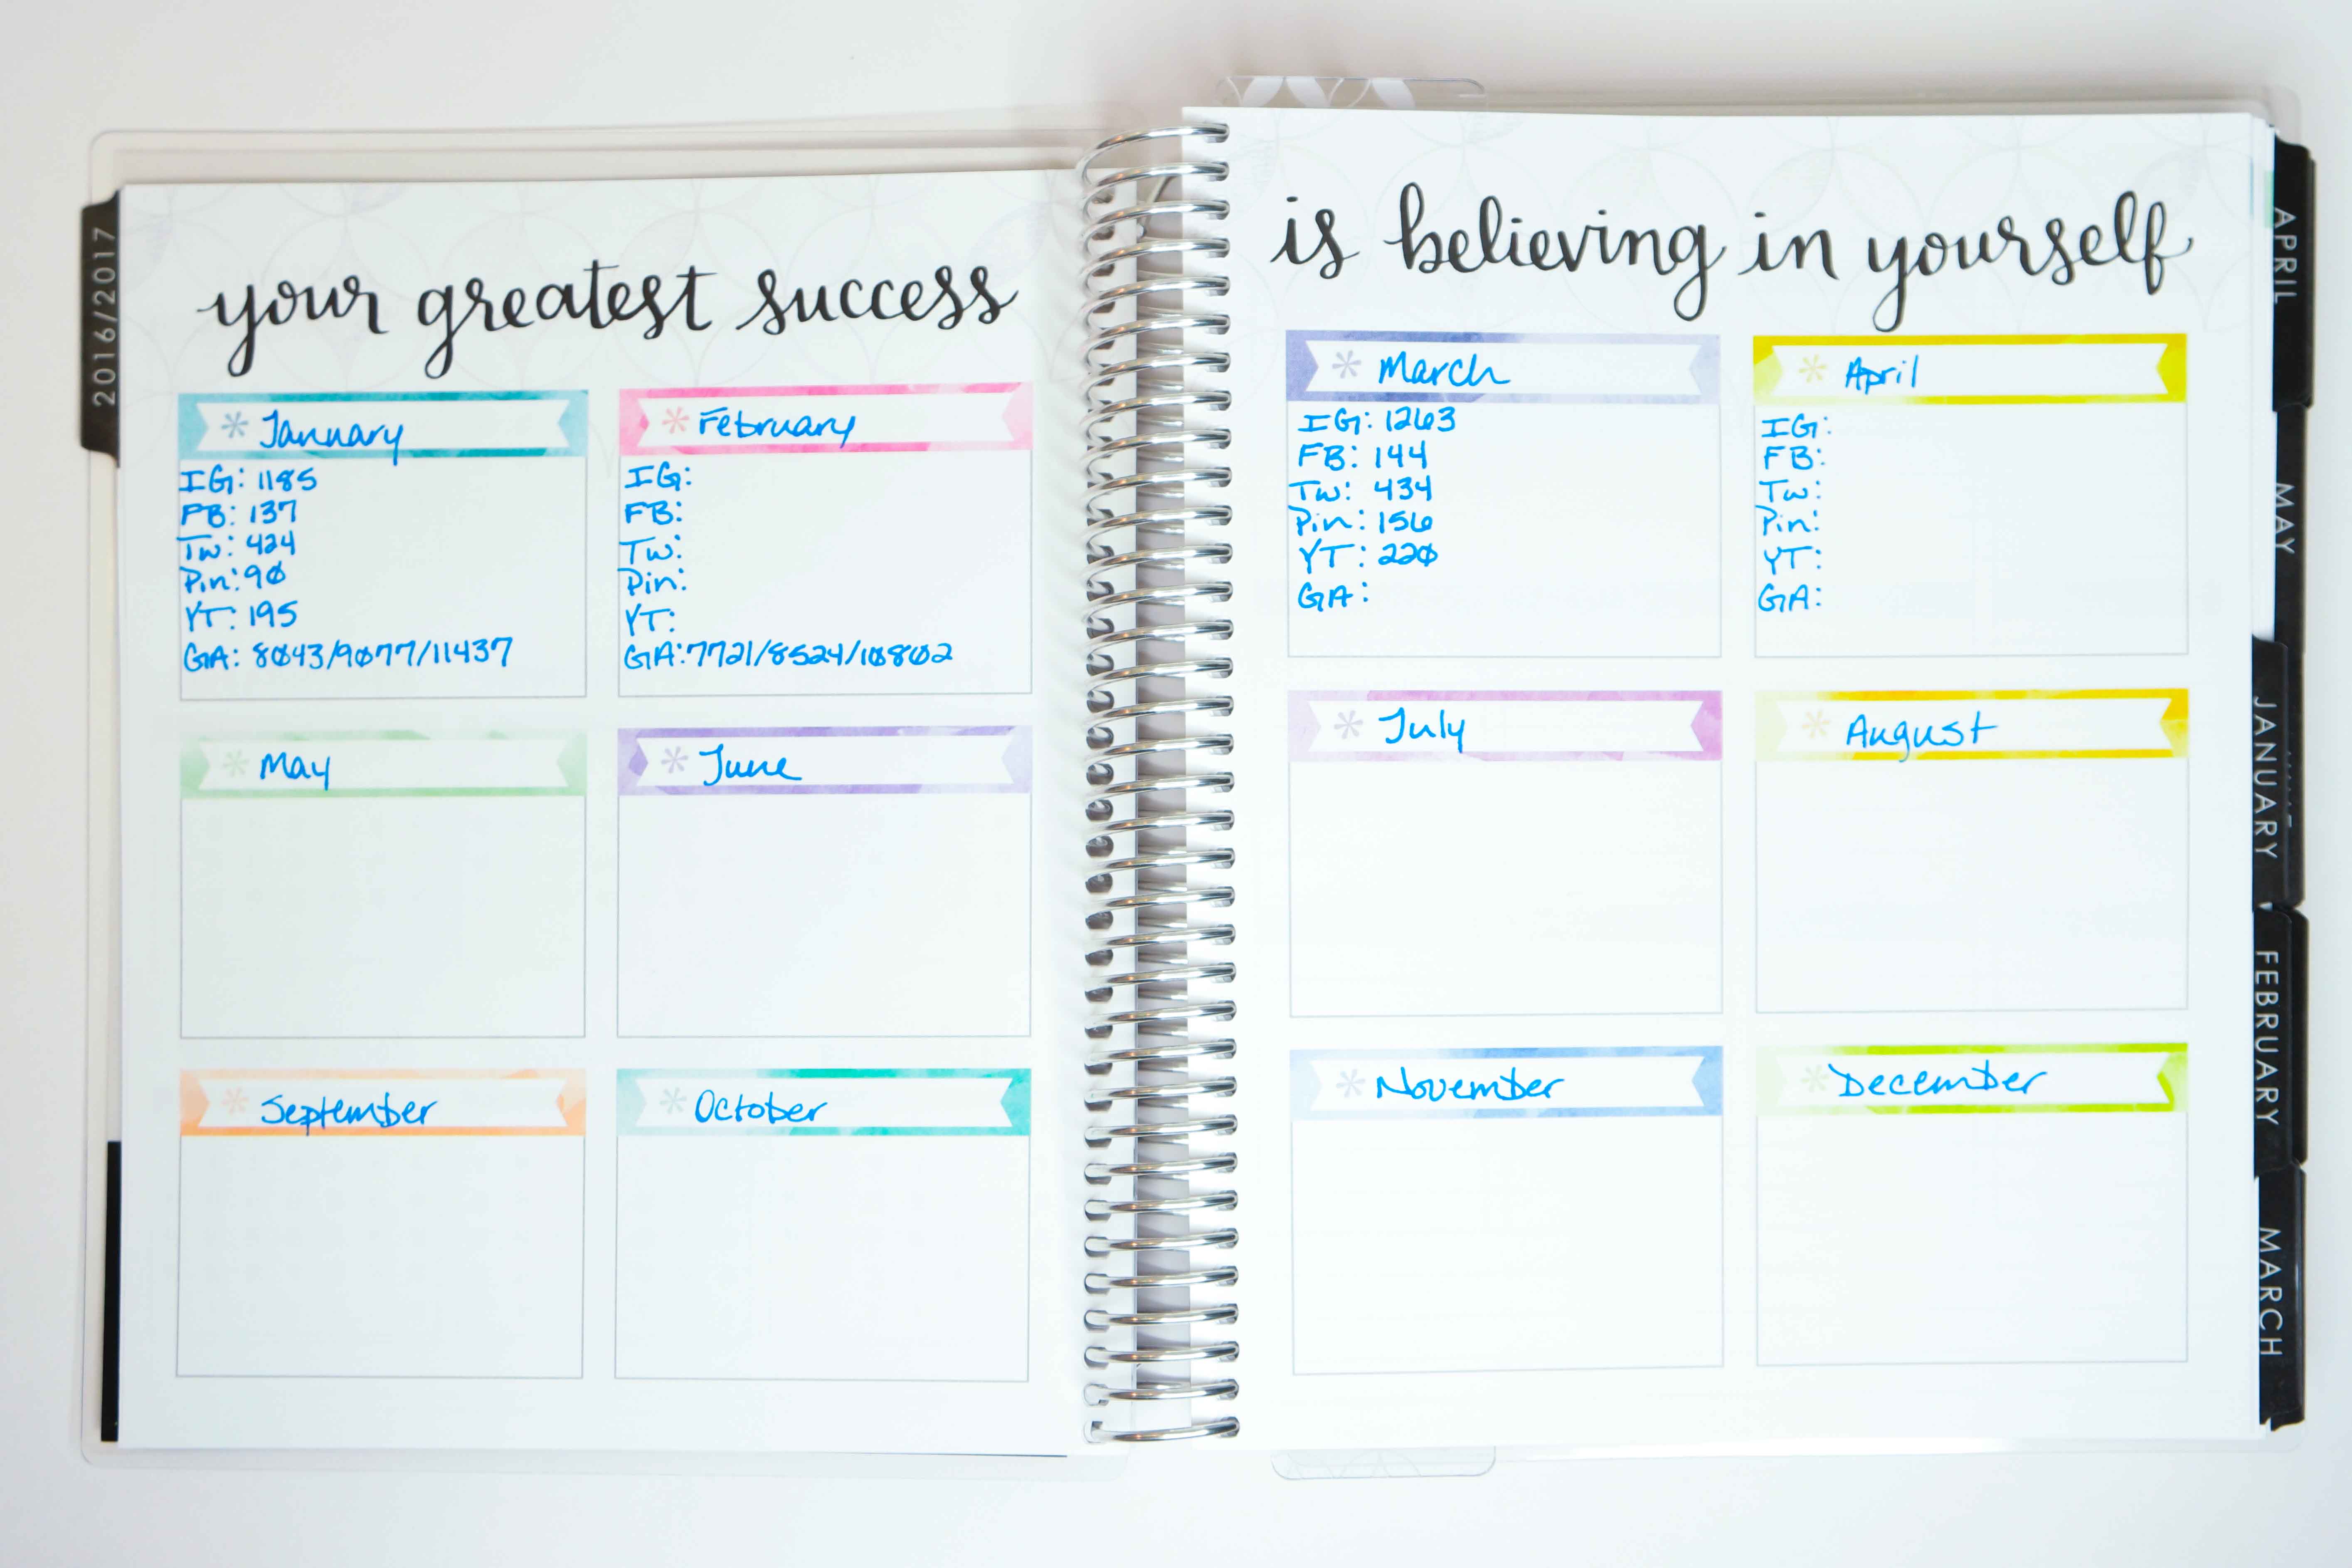 2016/2017
your greatest success
January
IG: 1185
FB: 137
Tw: 424
Pin: 90
YT: 195
GA: 8043/9077/11437
February
IG:
FB:
Tw:
Pin:
YT:
GA: 7721/8524/10802
May
June
September
October
is believing in yourself
March
IG: 1263
FB: 144
Tw: 434
Pin: 156
YT: 220
GA:
April
IG:
FB:
Tw:
Pin:
YT:
GA:
July
August
November
December
APRIL
MAY
JANUARY
FEBRUARY
MARCH